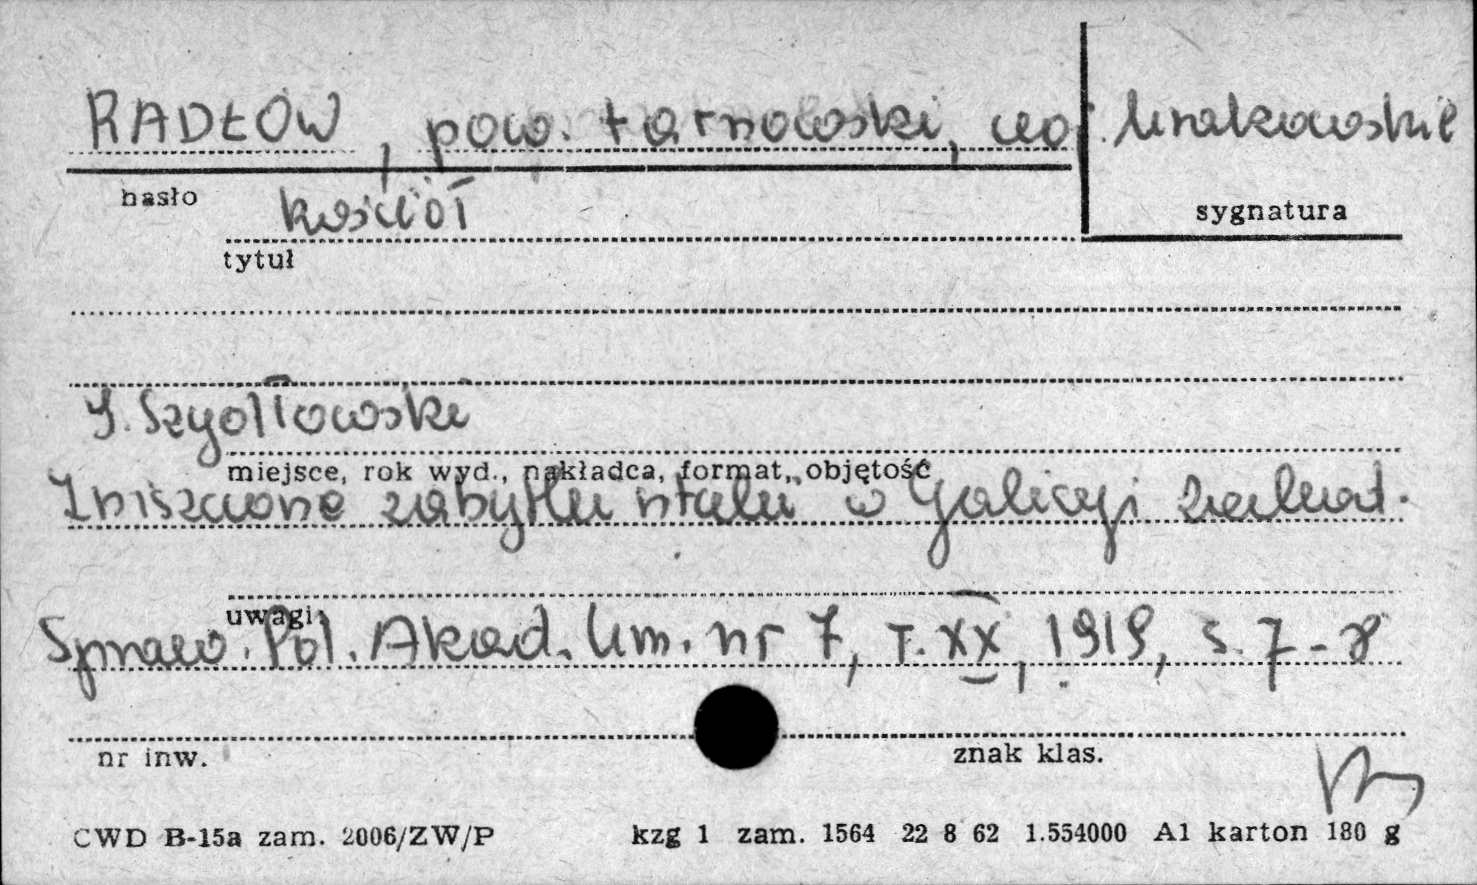 RADŁÓW, pow. tarnowski, woj. krakowskie
hasło
kościół
sygnatura
tytuł
J. Szydłowski
miejsce, rok wyd., nakładca, format, objętość
Zniszczone zabytki sztuki w Galicyi zachod.
uwagi
Spraw. Pol. Akad. Um. nr 7, T. XX, 1919, s. 7-8
nr inw.
znak klas.
CWD B-15a zam. 2006/ZW/P kzg 1 zam. 1564 22 8 62 1.554000 A1 karton 180 g